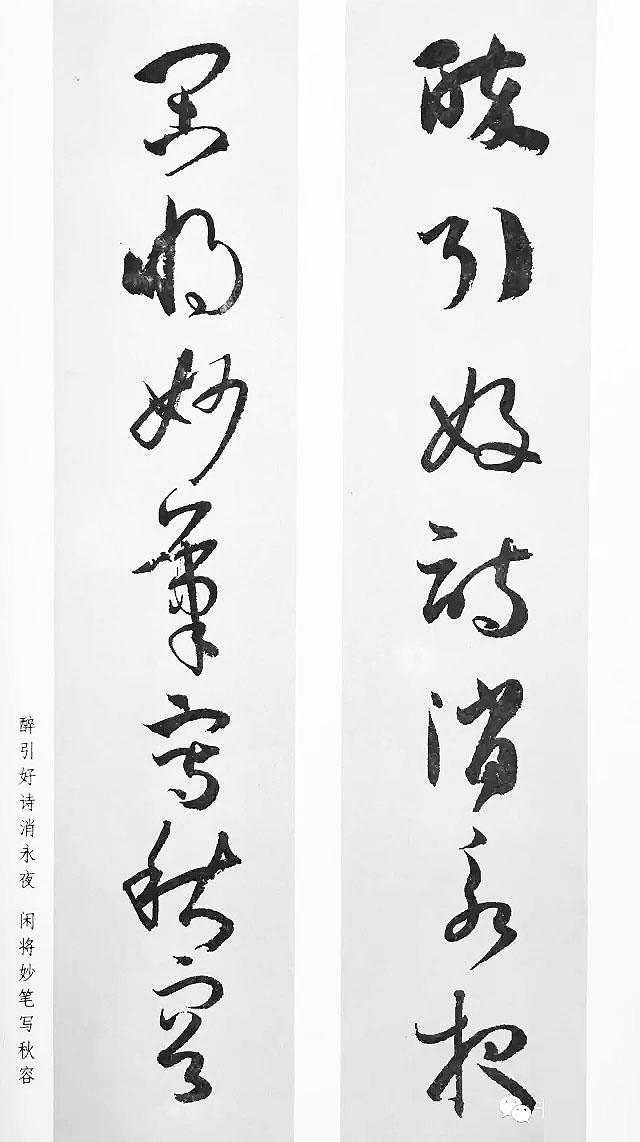 醉引好詩消永夜
閒將妙筆寫秋容
醉引好诗消永夜 闲将妙笔写秋容